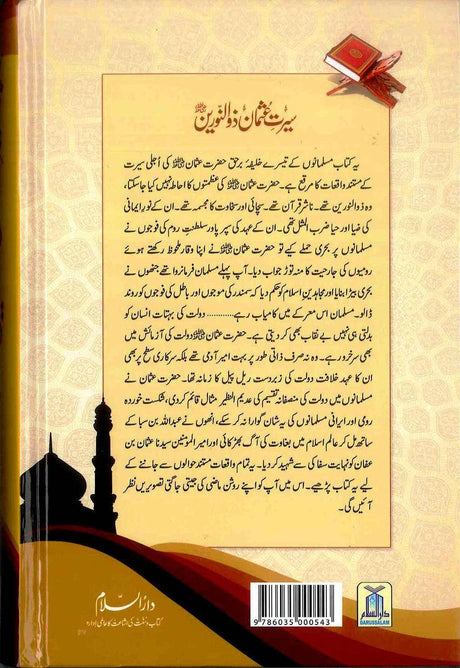 سیرتِ عثمان ذوالنورین رضی اللہ عنہ
یہ کتاب مسلمانوں کے تیسرے خلیفہ برحق حضرت عثمان رضی اللہ عنہ کی اُجلی سیرت
کے مستند واقعات کا مرقع ہے۔ حضرت عثمان رضی اللہ عنہ کی عظمتوں کا احاطہ نہیں کیا جاسکتا،
وہ ذوالنورین تھے۔ ناشر قرآن تھے۔ سچائی اور سخاوت کا مجسمہ تھے۔ ان کے نور ایمانی
کی ضیا اور حیا ضرب المثل تھی۔ ان کے عہد کی سپر پاور سلطنتِ روم کی فوجوں نے
مسلمانوں پر بحری حملے کیے تو حضرت عثمان رضی اللہ عنہ نے اپنا وقار ملحوظ رکھتے ہوئے
رومیوں کی جارحیت کا منہ توڑ جواب دیا۔ آپ پہلے مسلمان فرمانروا تھے جنھوں نے
بحری بیڑا بنایا اور مجاہدینِ اسلام کو حکم دیا کہ سمندر کی موجوں اور باطل کی فوجوں کو روند
ڈالو۔ مسلمان اس معرکے میں کامیاب رہے............ دولت کی بہتات انسان کو
بدلتی ہی نہیں بے نقاب بھی کر دیتی ہے۔ حضرت عثمان رضی اللہ عنہ دولت کی آزمائش میں
بھی سرخرو رہے۔ وہ نہ صرف ذاتی طور پر بہت امیر آدمی تھے بلکہ سرکاری سطح پر بھی
ان کا عہد خلافت دولت کی زبردست ریل پیل کا زمانہ تھا۔ حضرت عثمان نے
مسلمانوں میں دولت کی منصفانہ تقسیم کی عدیم النظیر مثال قائم کر دی، شکست خوردہ
رومی اور ایرانی مسلمانوں کی یہ شان گوارا نہ کر سکے، انھوں نے عبداللہ بن سبا کے
ساتھ مل کر عالم اسلام میں بغاوت کی آگ بھڑکائی اور امیر المؤمنین سیدنا عثمان بن
عفان کو نہایت سفاکی سے شہید کر دیا۔ یہ تمام واقعات مستند حوالوں سے جاننے کے
لیے یہ کتاب پڑھیے۔ اس میں آپ کو اپنے روشن ماضی کی جیتی جاگتی تصویریں نظر
آئیں گی۔
دارالسلام
کتاب و سنت کی اشاعت کا عالمی ادارہ
9 786035 000543
دارالسلام
DARUSSALAM